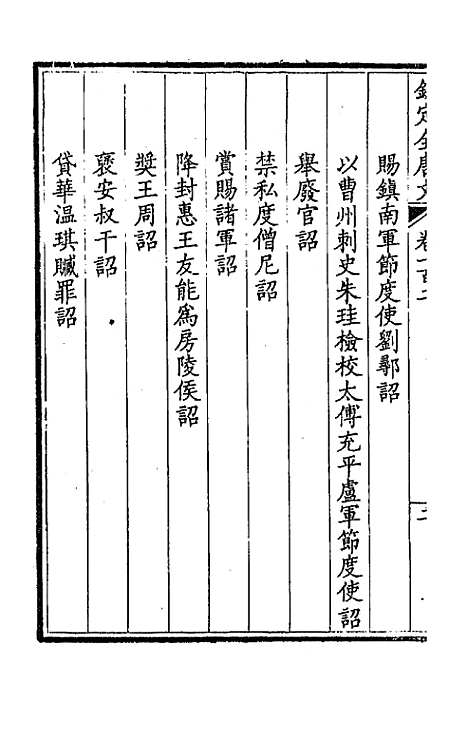 欽定全唐文 卷一百二 二
賜鎮南軍節度使劉鄩詔
以曹州刺史朱珪檢校太傅充平盧軍節度使詔
舉廢官詔
禁私度僧尼詔
賞賜諸軍詔
降封惠王友能爲房陵侯詔
獎王周詔
襃安叔千詔
貸華温琪贓罪詔